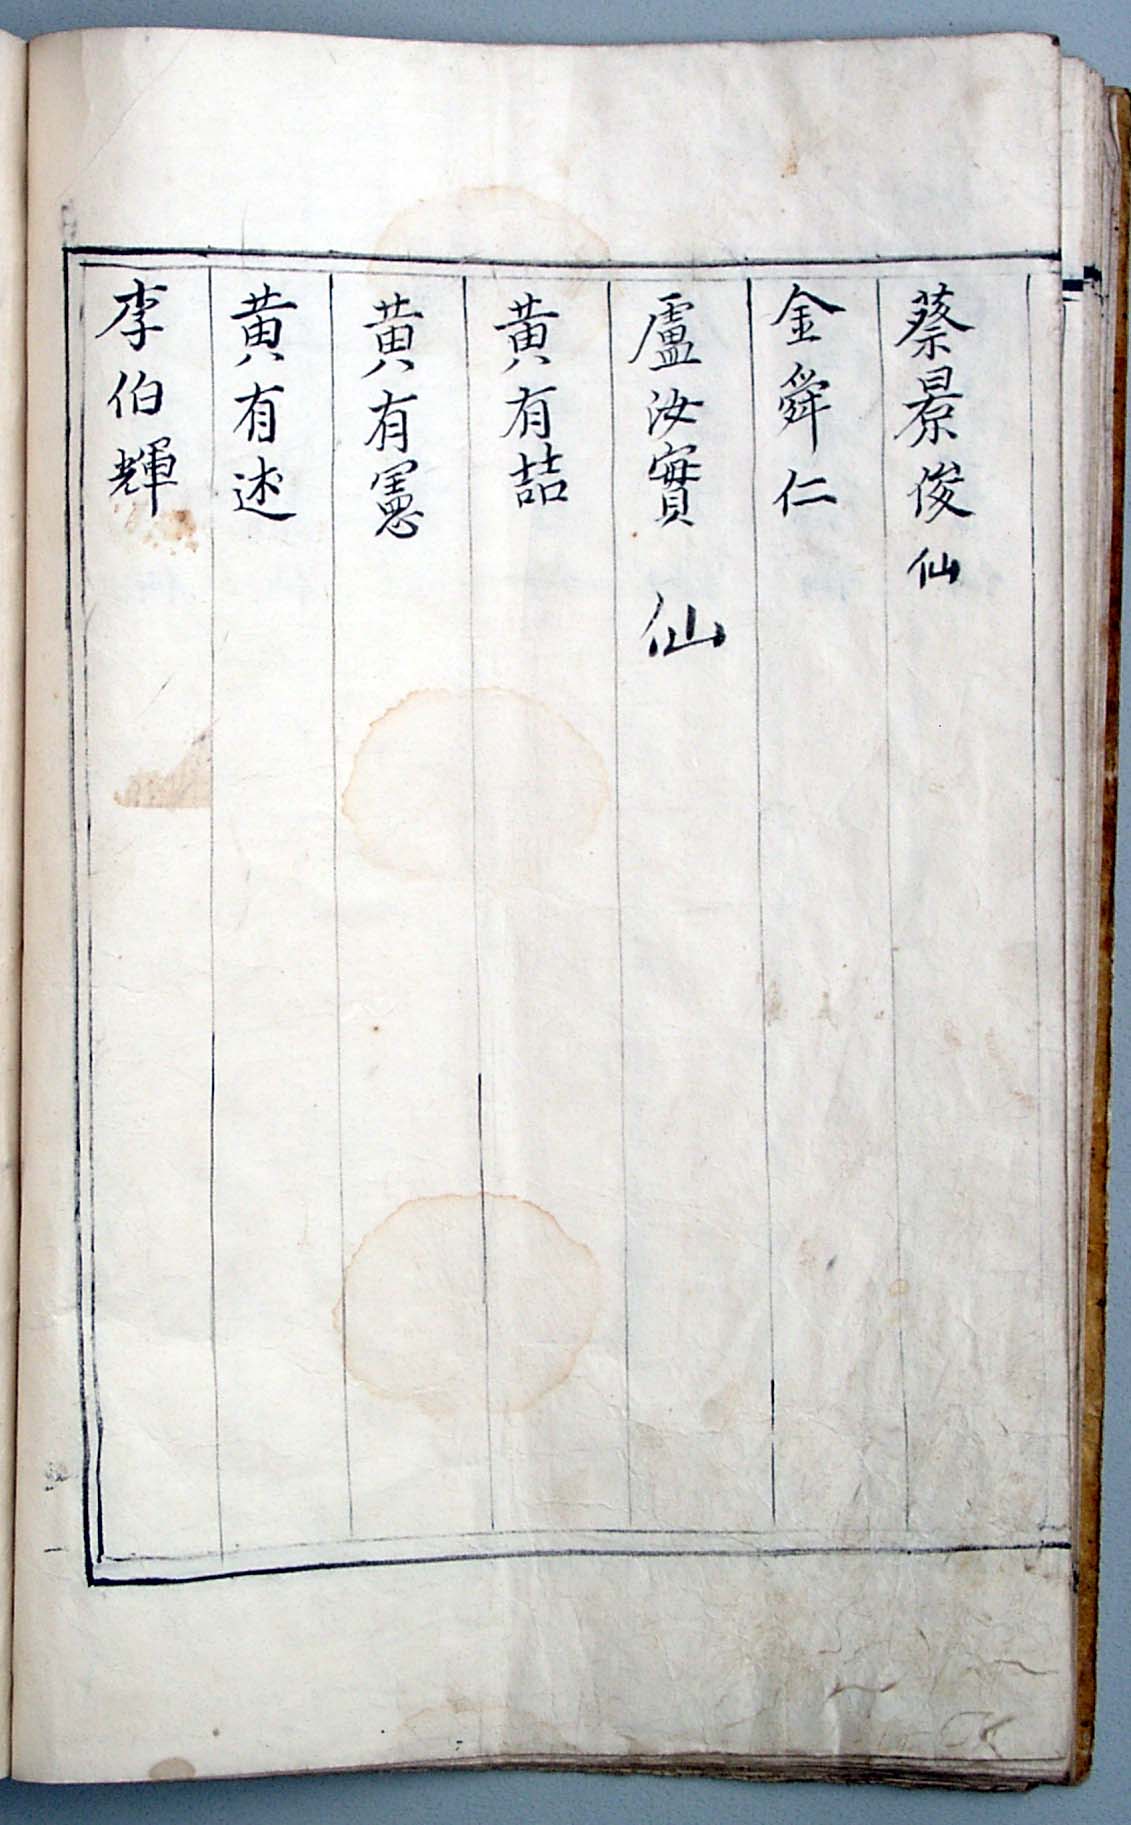 蔡景俊仙
金舜仁
盧汝實仙
黃有喆
黃有憲
黃有述
李伯輝